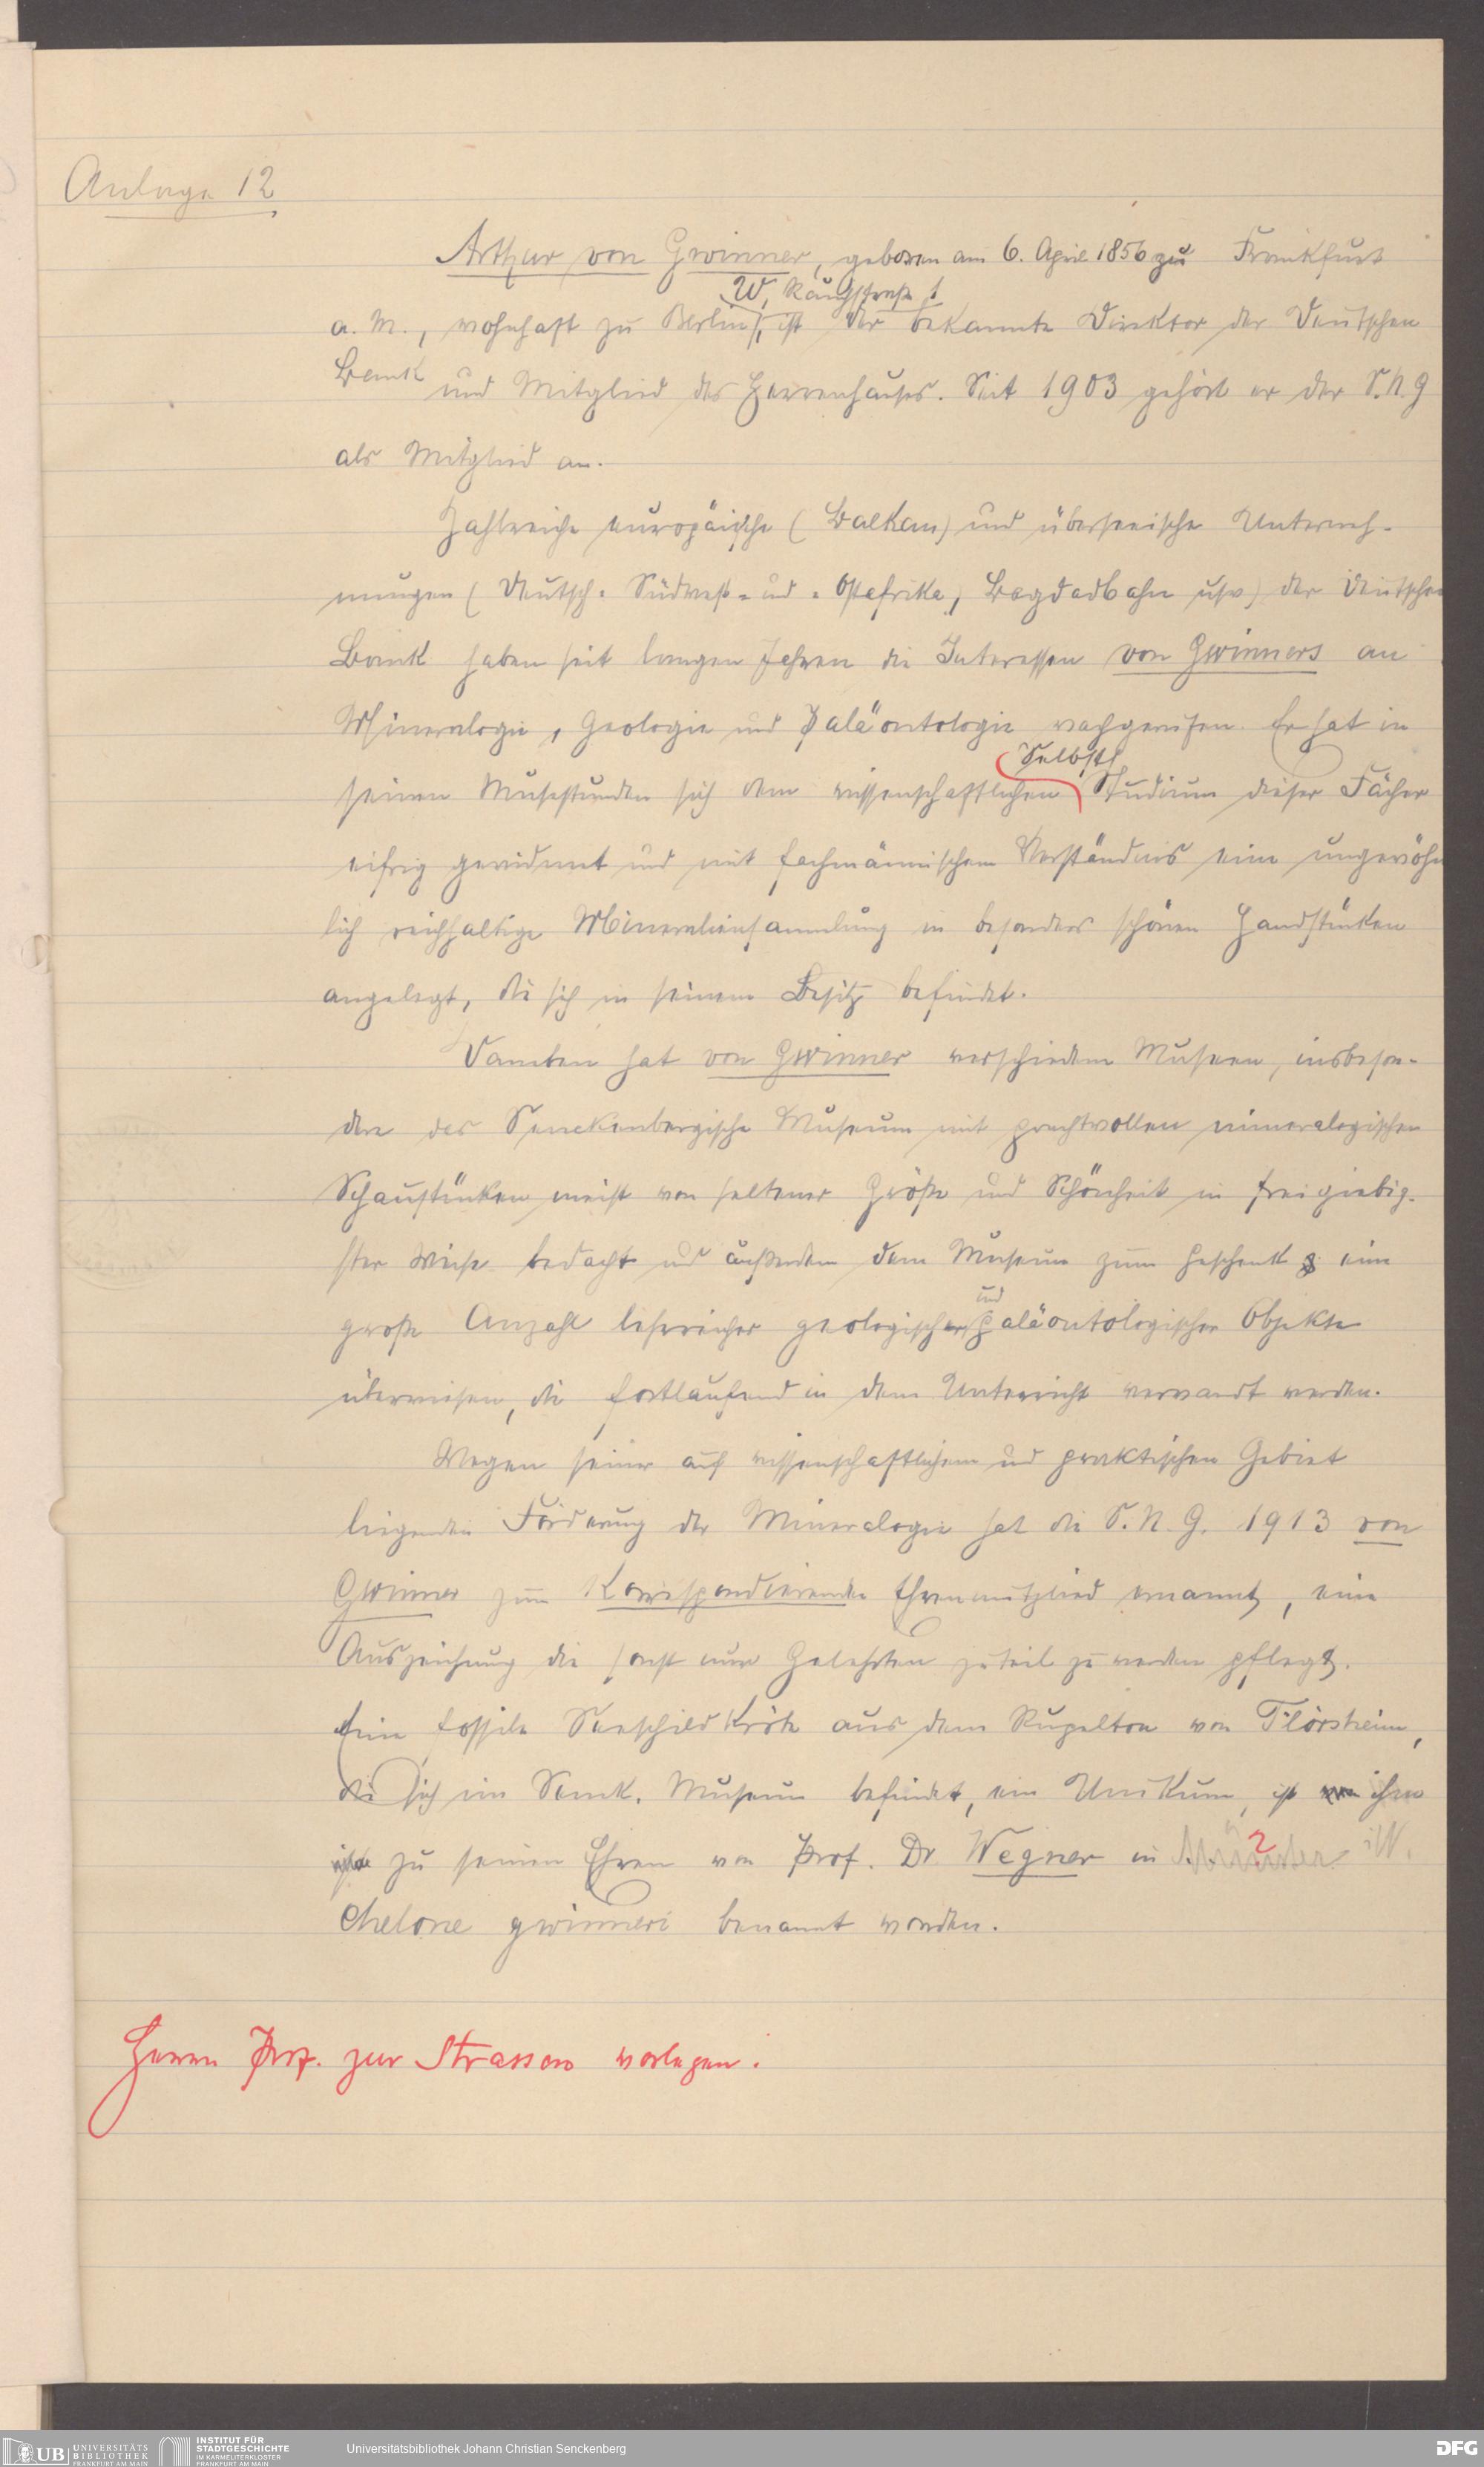 Anlage 12
Arthur von Gwinner, geboren am 6. April 1856 zu Frankfurt
W, Rauchstraße 1
a. M., wohnhaft zu Berlin, ist der bekannte Direktor der Deutschen
Bank und Mitglied des Herrenhauses. Seit 1903 gehört er der S.N.G
als Mitglied an.
Zahlreiche europäische (Balkan) und überseeische Unterneh-
mungen (Deutsch-Südwest- und -Ostafrika, Bagdadbahn usw) der Deutschen
Bank haben seit langen Jahren die Interessen von Gwinners an
Mineralogie, Geologie und Paläontologie wachgerufen. Er hat in
Selbst
seinen Musestunden sich dem wissenschaftlichen Studium dieser Fächer
eifrig gewidmet und mit fachmännischem Verständnis eine ungewöhn
lich reichhaltige Mineraliensammlung in besonders schönen Handstücken
angelegt, die sich in seinem Besitz befindet.
Daneben hat von Gwinner verschiedene Museen, insbeson-
dere das Senckenbergische Museum mit prachtvollen mineralogischen
Schaustücken meist von seltener Größe und Schönheit in freigiebig-
ster Weise bedacht und außerdem dem Museum zum Geschenk eine
und
große Anzahl lehrreicher geologischer paläontologischer Objekte
überwiesen, die fortlaufend in dem Unterricht verwandt werden.
Wegen seiner auf wissenschaftlichem und praktischen Gebiet
liegenden Förderung der Mineralogie hat die S.N.G. 1913 von
Gwinner zum Korrespondierenden Ehrenmitglied ernannt, eine
Auszeichnung die sonst nur Gelehrten zuteil zu werden pflegt.
Eine fossile Seeschildkröte aus dem Rupelton von Flörsheim,
die sich im Senck. Museum befindet, ein Unikum, ist von ihm
zu seinen Ehren von Prof. Dr Wegner in Münster i W.
2
Chelone gwinneri benannt worden.
Herrn Prof. zur Strassen vorlegen.
UB UNIVERSITÄTS
BIBLIOTHEK
FRANKFURT AM MAIN
INSTITUT FÜR
STADTGESCHICHTE
IM KARMELITERKLOSTER
FRANKFURT AM MAIN
Universitätsbibliothek Johann Christian Senckenberg
DFG